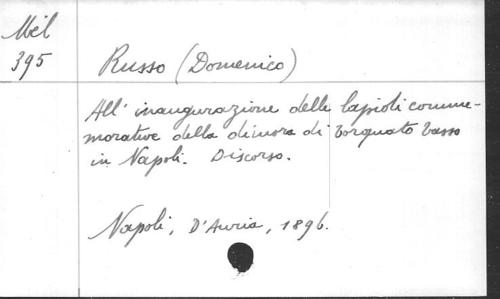 Mél
395
Russo (Domenico)
All' inaugurazione delle lapioli comme-
morative della dimora di Torquato Tasso
in Napoli. Discorso.
Napoli, D'Auria, 1896.